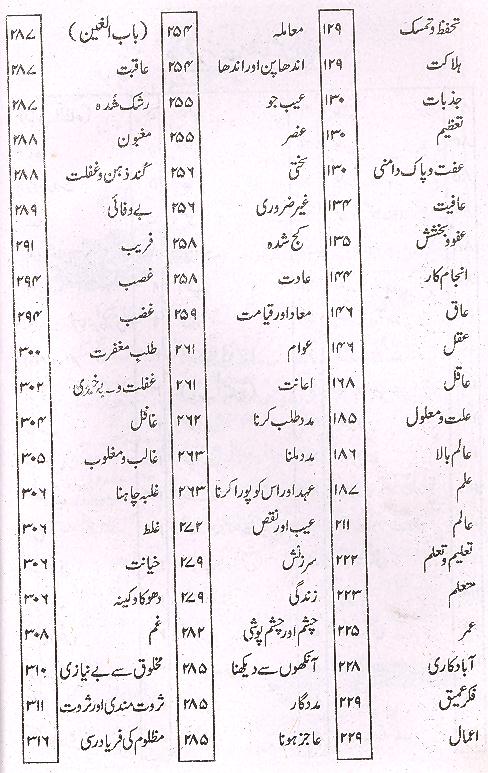 تحفظ و تمسک ۱۲۹
ہلاکت ۱۲۹
جذبات ۱۳۰
تعظیم ۱۳۰
عفت و پاک دامنی ۱۳۰
عافیت ۱۳۴
عفو و بخشش ۱۳۵
انجام کار ۱۴۴
عاق ۱۴۶
عقل ۱۴۶
عاقل ۱۶۸
علت و معلول ۱۸۵
عالم بالا ۱۸۶
علم ۱۸۷
عالم ۲۱۱
تعلیم و تعلم ۲۲۲
متعلم ۲۲۳
عمر ۲۲۵
آبادکاری ۲۲۸
فکر عمیق ۲۲۹
اعمال ۲۲۹
معاملہ ۲۵۴
اندھا پن اور اندھا ۲۵۴
عیب جو ۲۵۵
عنصر ۲۵۵
سختی ۲۵۶
غیر ضروری ۲۵۶
کج شدہ ۲۵۸
عادت ۲۵۸
معاد اور قیامت ۲۵۹
عوام ۲۶۱
اعانت ۲۶۱
مدد طلب کرنا ۲۶۲
مدد ملنا ۲۶۳
عہد اور اس کو پورا کرنا ۲۶۳
عیب اور نقص ۲۷۲
سرزنش ۲۷۹
زندگی ۲۷۹
چشم اور چشم پوشی ۲۸۲
آنکھوں سے دیکھنا ۲۸۵
مددگار ۲۸۵
عاجز ہونا ۲۸۵
(باب الغین) ۲۸۷
عاقبت ۲۸۷
رشک شدہ ۲۸۷
مغبون ۲۸۸
کند ذہن و غفلت ۲۸۸
بے وفائی ۲۸۹
فریب ۲۹۱
غصب ۲۹۴
غضب ۲۹۴
طلب مغفرت ۳۰۰
غفلت و بے خبری ۳۰۲
غافل ۳۰۴
غالب و مغلوب ۳۰۵
غلبہ چاہنا ۳۰۶
غلط ۳۰۶
خیانت ۳۰۶
دھوکا و کینہ ۳۰۶
غم ۳۰۸
مخلوق سے بے نیازی ۳۱۰
ثروت مندی اور ثروت ۳۱۱
مظلوم کی فریاد رسی ۳۱۶